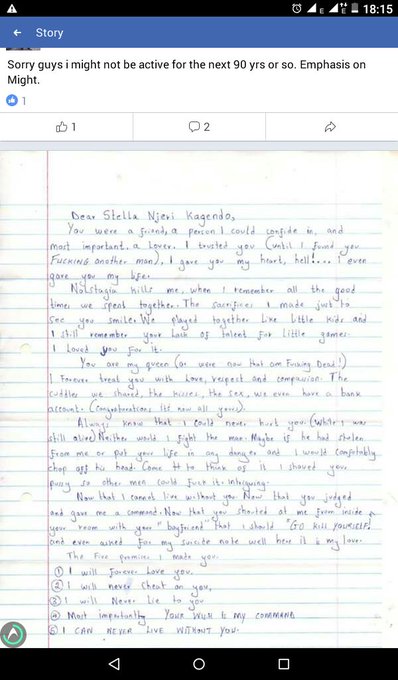 18:15
Story
Sorry guys i might not be active for the next 90 yrs or so. Emphasis on
Might.
1
1
2
Dear Stella Njeri Kagendo,
You were a friend, a person I could confide in, and
most important, a lover. I trusted you (until I found you
FUCKING another man), I gave you my heart, hell!.... I even
gave you my life.
Nolstagia kills me, when I remember all the good
times we spent together. The sacrifices I made just to
see you smile. We played together like little kids and
I still remember your lack of talent for little games
I loved you for it.
You are my queen (or were now that am Fucking Dead!)
I Forever treat you with love, respect and compassion. The
cuddles we shared, the kisses, the sex, we even have a bank
account. (Congratulations its now all yours).
Always know that I could never hurt you. (While I was
still alive) Neither would I fight the man. Maybe if he had stolen
from me or put your life in any danger and I would comfortably
chop off his head. Come to think of it I shaved your
pussy so other men could fuck it. Intriguing.
Now that I cannot live without you. Now that you judged
and gave me a command. Now that you shouted at me from inside
your room with your "boyfriend" that I should "GO KILL YOURSELF"
and even asked for my suicide note well here it is my love.
The Five promises I made you.
① I will Forever Love you.
② I will never Cheat on you,
③ I will Never Lie to you
④ Most importantly YOUR WISH IS MY COMMAND
⑤ I CAN NEVER LIVE WITHOUT YOU.